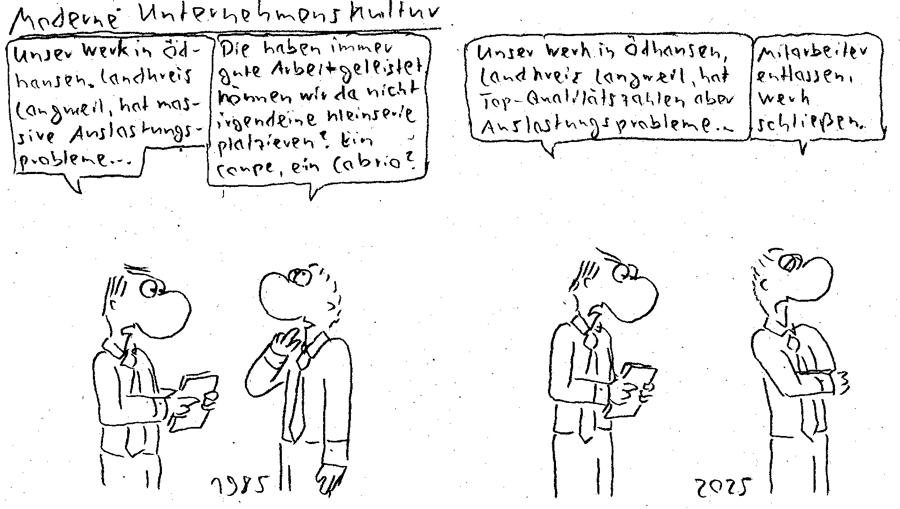 Moderne Unternehmenskultur
Unser Werk in Öd-
hansen, Landkreis
Langweil, hat mas-
sive Auslastungs-
probleme...
Die haben immer
gute Arbeit geleistet
können wir da nicht
irgendeine Kleinserie
platzieren? Ein
Coupe, ein Cabrio?
Unser Werk in Ödhansen,
Landkreis Langweil, hat
Top-Qualitätszahlen aber
Auslastungsprobleme...
Mitarbeiter
entlassen,
Werk
schließen.
1985
2025